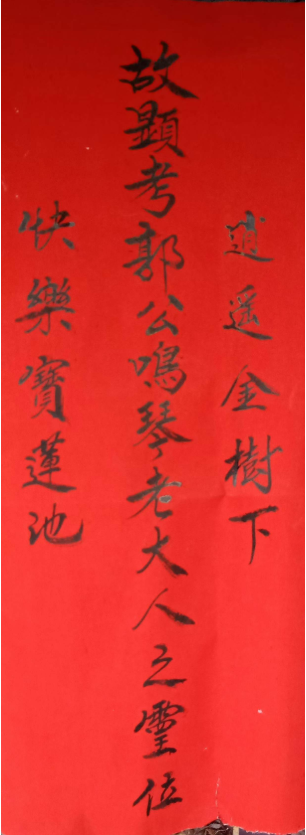 逍遥金樹下
故顯考郭公鳴琴老大人之靈位
快樂寳蓮池